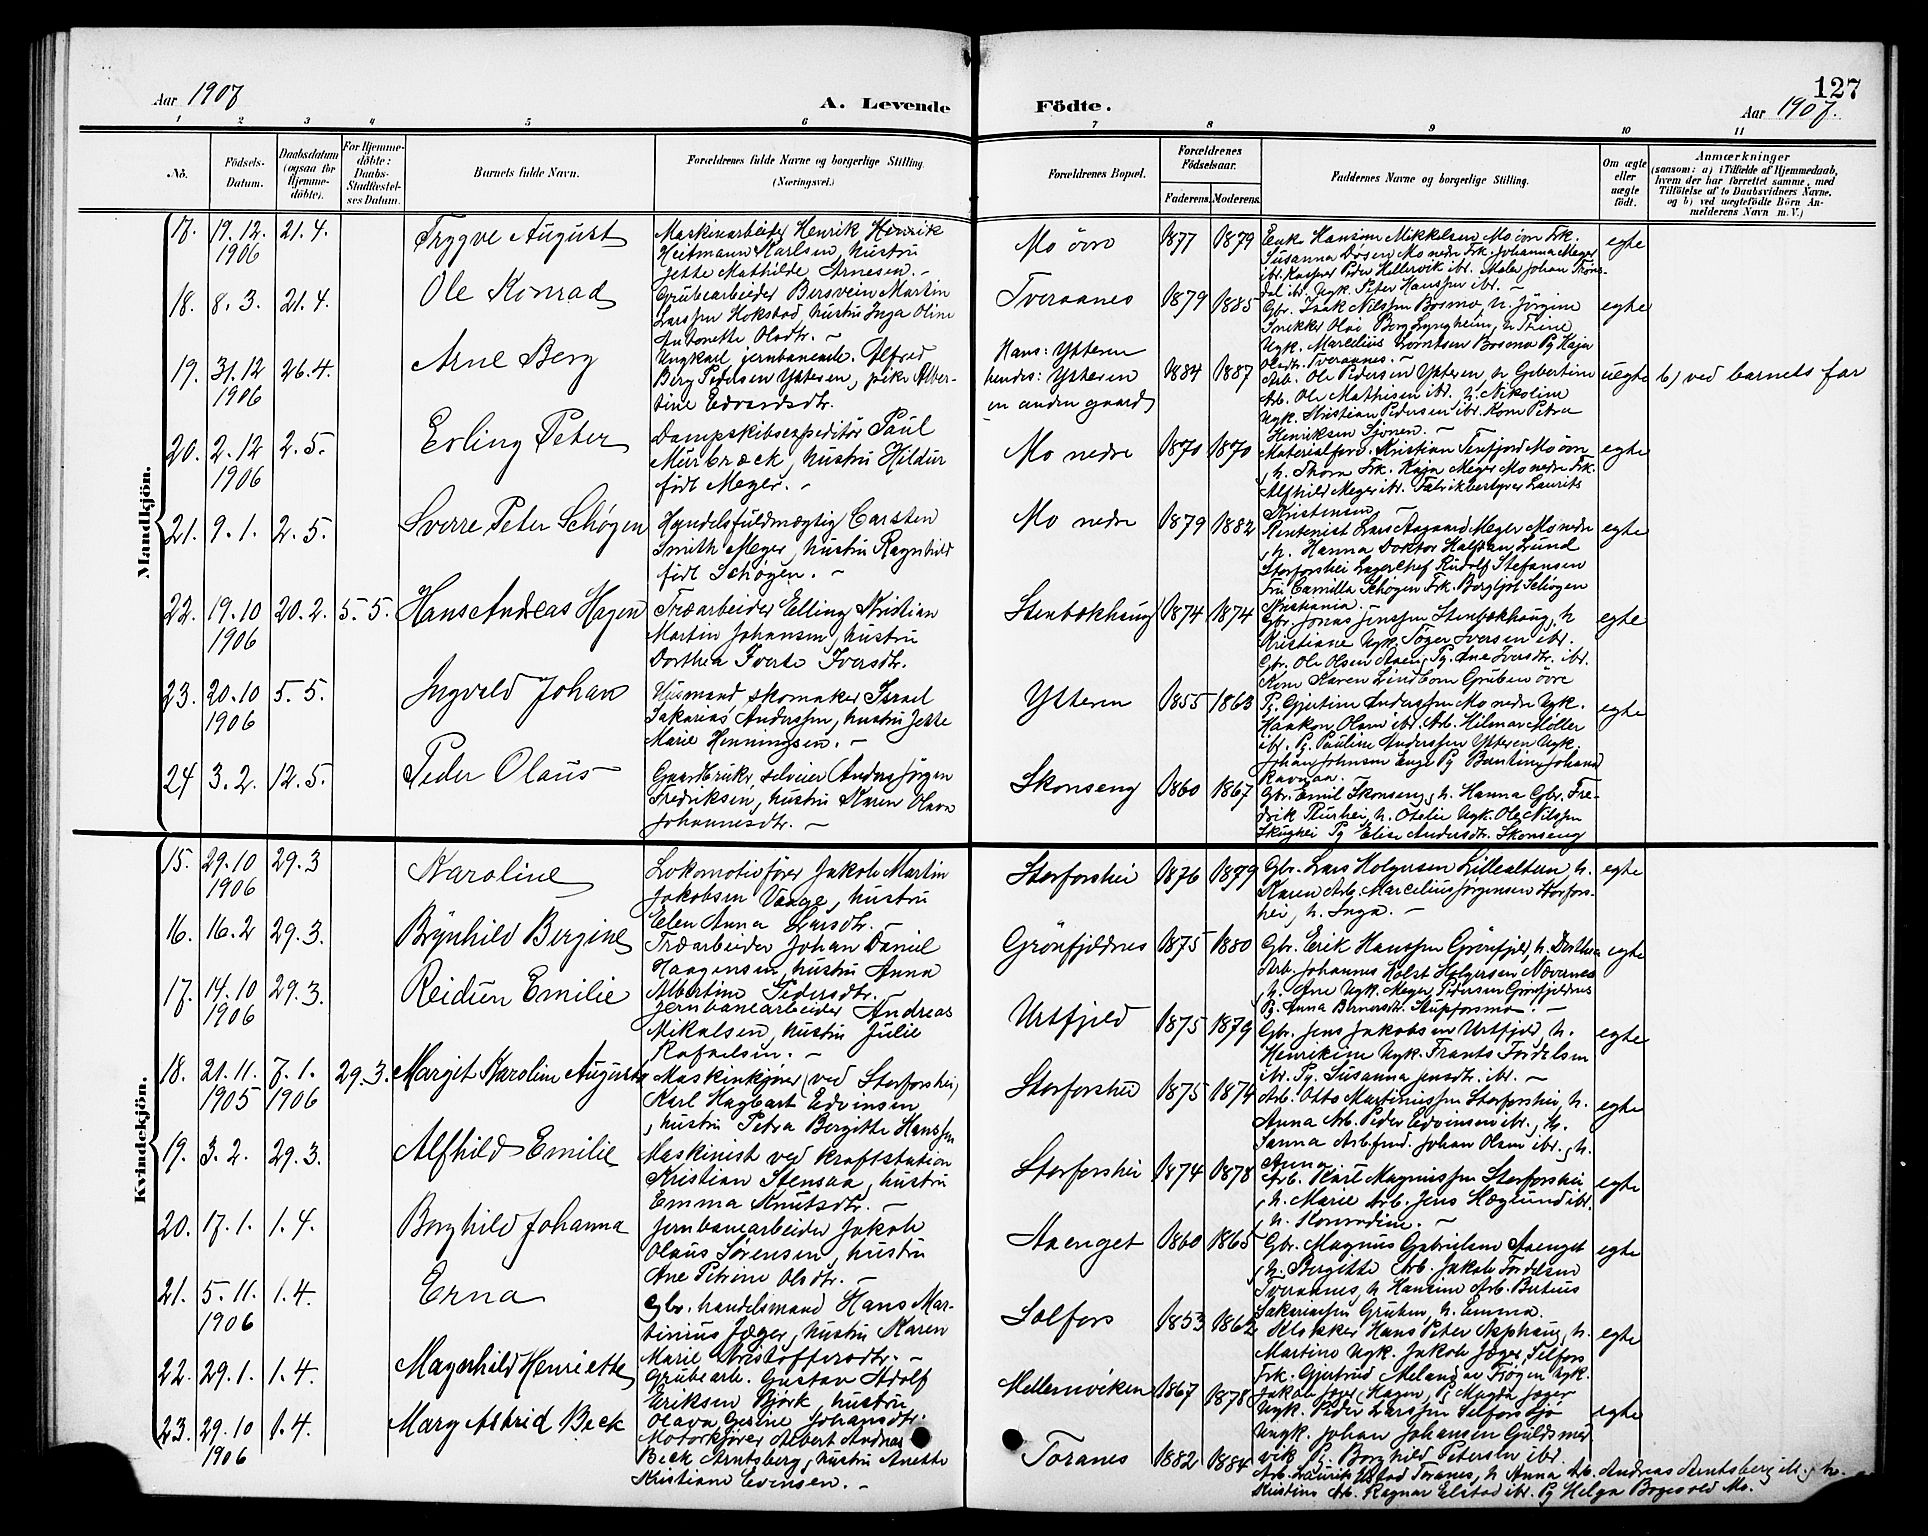 127
Aar 1907
A. Levende
Födte.
Aar 1907.
1 2 3 4 5 6 7 8 9 10 11
No.
Födsels-
Datum.
Daabsdatum
(ogsaa for
Hjemme-
döbte).
For Hjemme-
döbte:
Daabs-
Stadfæstel-
ses Datum.
Barnets fulde Navn.
Forældrenes fulde Navne og borgerlige Stilling.
(Næringsvei.)
Forældrenes Bopæl.
Forældrenes
Födselsaar.
Faderens. Moderens.
Faddernes Navne og borgerlige Stilling.
Om ægte
eller
uægte
födt.
Anmærkninger
(saasom: a) i Tilfælde af Hjemmedaab,
hvem der har forrettet samme, med
Tilföielse af to Daabsvidners Navne.
og b) ved uægtefödte Börn An-
melderens Navn m. V.)
Mandkjön.
17. 19.12. 1906 21.4. Trygve August
Maskinarbeider Henrik Henrik
Heitmann Karlsen, hustru
Jette Mathilde Arnesen. -
Mo övre 1877 1879
Enke Hansine Mikkelsen Mo övre Frk.
Susanna Dosen Mo nedre Frk. Johanna Meyer
ibr. Kasper Peder Hellervik ibr. Maler Johan Trøns-
dal ibr. Ugk. Peter Hanssen ibr. -
egte
18. 8.3. 21.4. Ole Konrad
Grubearbeider Bersvein Martin
Larssen Hokstad, hustru Inga Oline
Antonette Olsdtr. -
Tveraanes 1879 1885
Gbr. Isak Nilssen Bosmo, h. Jörgine
Snekker Olai Borg Lyngheim, h. Trine
Ugk. Marcelius Berntsen Bosmo Pg Kaja
Olsdtr. Tveraanes. -
egte
19. 31.12 1906 26.4. Arne Berg
Ungkarl jernbanearb. Alfred
Berg Pedersen Ytteren, pike Alber-
tine Edvardsdtr.
Hans: Ytteren
hendes: Ytteren
en anden gaard
1884 1887
Arb. Ole Pedersen Ytteren h Gibertine
Arb. Ole Mathisen ibr. h. Nikoline
Ugk. Kristian Pedersen ibr. Kone Petra
Henriksen Sjonen. -
uegte b) ved barnets far
20. 2.12 1906 2.5. Erling Peter
Dampskibsexpeditör Paul
Murbræck, hustru Hildur
født Meyer. -
Mo nedre 1870 1870
Materialforv. Kristian Tenfjord Mo övre
, h. Thora Frk. Kaja Meyer Mo nedre Frk.
Alfhild Meyer ibr. Fabrikbestyrer Laurits
Kristensen -
egte
21. 9.1. 2.5. Sverre Peter Schøgen
Handelsfuldmægtig Carsten
Smith Meyer, hustru Ragnhild
født Schøgen. -
Mo nedre 1879 1882
Rentenist Lars Aagaard Meyer Mo nedre
, h. Hanna Doktor Halfdan Lund
Storforshei Lagerchef Rudolf Stefansen
Fru Camilla Schøgen Frk. Borgljot Schøgen
Kristiania. -
egte
22. 19.10 1906 20.2. 5.5. Hans Andreas Hagen
Træarbeider Elling Kristian
Martin Johansen, hustru
Dorthea Iverte Iversdtr.
Stenbækhaug 1874 1874
Gbr. Jonas Jenssen Stenbækhaug, h
Kristiane Ugk. Töger Iversen ibr.
Gbr. Ole Olsen Aaen, Pg. Ane Iversdtr. ibr.
Kone Karen Lindbom Gruben övre
egte
23. 20.10 1906 5.5. Ingvald Johan
Husmand, skomaker Israel
Sakarias Anderssen, hustru Jette
Marie Henningsen. -
Ytteren 1855 1863
Pg. Gjertine Anderssen Mo nedre Ugk.
Haakon Olsen ibr. Arb. Hilmar Möller
ibr. Pg. Pauline Anderssen Ytteren Ugk.
Johan Johnsen Enge Pg Bentine Johans
Ravnaa. -
egte
24 3.2. 12.5. Peder Olaus
Gaardbruker selveier Anders Jörgen
Fredriksen, hustru Karen Olava
Johannesdtr. -
Skonseng 1860 1867
Gbr. Emil Skonseng, h. Hanna Gbr. Fre-
drik Plurhei, h. Otelie Ugk. Ole Nilssen
Skughei Pg Elise Andersdtr. Skonseng
Kvindekjön.
15. 29.10 1906 29.3 Karoline
Lokomotivförer Jakob Martin
Jakobsen Vaage, hustru
Elen Anna Larsdtr. -
Storforshei 1876 1879
Gbr. Lars Holgersen Lilleälteren h.
Karen Arb. Marcelius Jørgensen Storfors-
hei, h. Inga. -
egte
16. 16.2 29.3. Brynhild Bergine
Træarbeider Johan Daniel
Haagensen, hustru Anna
Albertine Pedersdtr. -
Grönfjeldnes 1875 1880
Gbr. Erik Hanssen Grönfjeld, h. Dorthea
Arb. Johannes Holst Holgersen Nævernes
, h. Ane Ugk. Meyer Pedersen Grönfjeldnes
Pg. Anna Berntsdtr. Stupforsmo. -
egte
17. 14.10 1906 29.3. Reidun Emilie
Jernbanearbeider Andreas
Mikalsen, hustru Julie
Rafaelsen. -
Urtfjeld 1875 1879
Gbr. Jens Jakobsen Urtfjeld, h.
Henrikine Ugk. Frants Fordelsen
ibr. Pg. Susanna Jensdtr. ibr. -
egte
18. 21.11. 1905 7.1. 1906 29.3. Margit Karoline Augusta
Maskinkjører (ved Storforshei)
Karl Hagbart Edvinsen
, hustru Petra Bergitte Hanssen
Storforshei 1875 1874
Arb. Otto Martinussen Storforshei, h.
Anna Arb. Peder Edvinsen ibr., h.
Janna Arb.fmd. Johan Olsen ibr., h.
Anna
egte
19. 3.2. 29.3. Alfhild Emilie
Maskinist ved kraftstation
Kristian Stensaa, hustru
Emma Knutsdtr. -
Storforshei 1874 1878
Arb. Karl Magnussen Storforshei
, h. Marie Arb. Jens Hæglund ibr.
, h. Konradine. -
egte
20. 17.1. 1.4. Borghild Johanna
Jernbanearbeider Jakob
Olaus Sørensen, hustru
Ane Petrine Olsdtr. -
Aaenget 1860 1865
Gbr. Magnus Gabrielsen Aaenget
, h. Bergitte Arb. Jakob Fordelsen
Tveraanes, h Hansine Arb. Bertius
Sakariassen Gruben, h. Emma.
egte
21. 5.11. 1906 1.4. Erna
Gbr. handelsmand Hans Mar-
tinius Jæger, hustru Karen
Marie Kristoffersdtr. -
Selfors 1853 1862
Klokker Hans Peter Aphaug, h.
Martine Ugk. Jakob Jæger, Selfors
Frk. Gjertrud Melandsø Trögen Ugk.
Jakob Jæger, Hagen, Pg Magda Jæger
egte
22. 29.1. 1.4. Magnhild Henriette
Grubearb. Gustav Adolf
Eriksen Björk, hustru
Olava Gerine Johansdtr.
Mellemviken 1867 1878
Ugk. Peder Larssen Selforssjö
Ungk. Johan Johansen Guldsmed-
vik Pg. Borghild Petersen ibr.
egte
23. 29.10 1906 1.4. Mary Astrid Beck
Motorkjører Albert Andreas
Beck Arntsberg, hustru Anette
Kristiane Evensen. -
Toranes 1882 1884
Arb. Laurik Elstad Toranes, h Anna Arb. Andreas Arntsberg Mo, h.
Kristine Arb. Ragnar Elstad ibr. Pg Helga Bogesvold Mo.